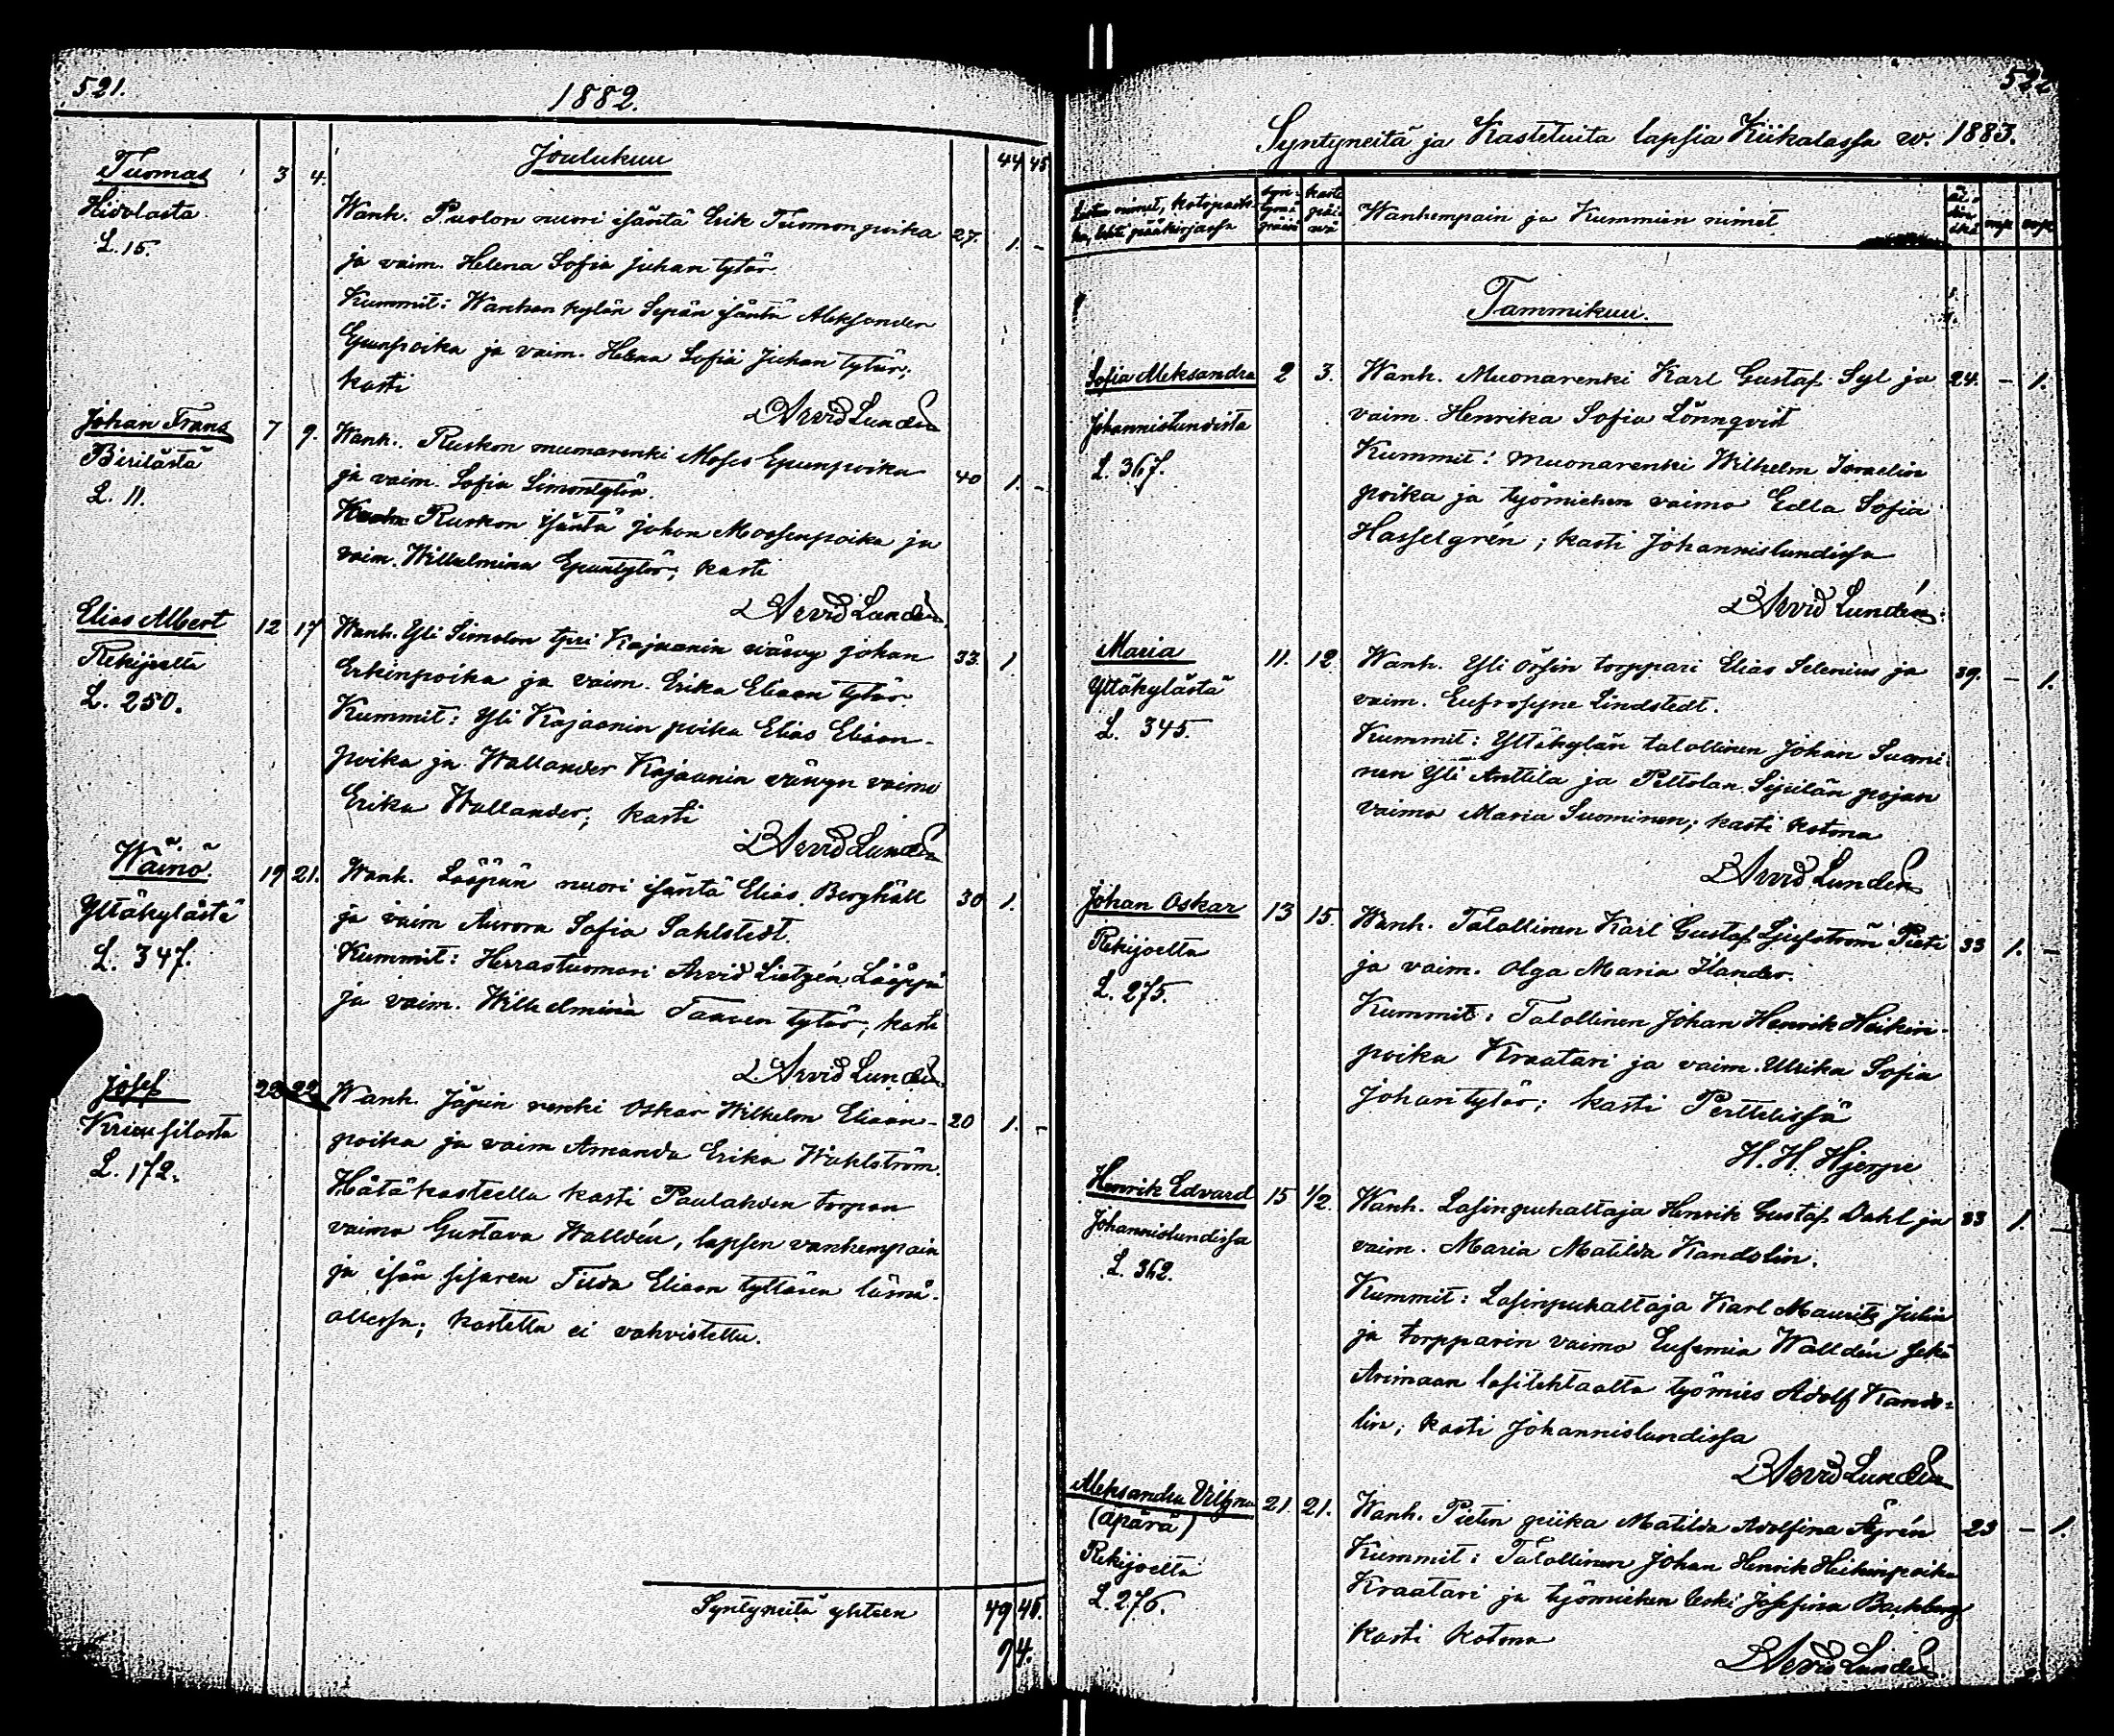 521.
1882.
Joulukuu
44 45
Tuomas 3 4. Wanh. Puolon nuori isäntä Erik Tuomonpoika 27. 1. -
Hidolasta
L. 15.
ja vaim. Helena Sofia Juhan tytär.
Kummit: Wanhan kylän Sepän isäntä Aleksander
Epunpoika ja vaim. Helena Sofia Juhan tytär;
kasti
Arvid Lundén
Johan Frans 7 9. Wanh. Ruskon muonarenki Moses Epunpoika 40 1. -
Birilästä
L. 11.
ja vaim. Sofia Simontytär.
Ruskon isäntä Johan Moosenpoika ja
vaim. Wilhelmina Epuntytär; kasti
Arvid Lundén
Elias Albert 12 17 Wanh. Yli Simolon tpri Kajaanin vävy Johan 33. 1
Rekijoelta
L. 250.
Erkinpoika ja vaim. Erika Eliaan tytär.
Kummit: Yli Kajaanin poika Elias Eliaan-
poika ja Wallander Kajaanin vävyn vaimo
Erika Wallander; kasti
Arvid Lundén
Wäinö. 19 21. Wanh. Lääpän nuori isäntä Elias Berghäll 30 1.
Yltäkylästä
L. 347.
ja vaim Aurora Sofia Sahlstedt.
Kummit: Herrastuomari Arvid Lietzén Lääppä
ja vaim. Wilhelmina Taaven tytär; kasti
Arvid Lundén
Josef 22 22 Wanh. Jäpin renki Oskar Wilhelm Eliaan- 20 1. -
L. 172.
poika ja vaim Amanda Erika Wahlström.
Hätäkasteella kasti Paulahden torpan
vaimo Gustava Walldén, lapsen vanhempain
ja isän sisaren Tilda Eliaan tyttären läsnä-
ollessa; kastetta ei vahvistettu.
Syntyneitä yhteen 49 45.
94.
522
Syntyneitä ja Kastetuita lapsia Kiikalassa w. 1883.
Lasten nimet, kotopaik-
ka, lehti pääkirjassa
synty-
mä
päivä
kaste
päi-
wä
Wanhempain ja Kummien nimet
äi-
din
ikä
mp. wp.
Tammikuu.
Sofia Aleksandra 2 3. Wanh. Muonarenki Karl Gustaf Syl ja 24. - 1.
Johannislundista
L. 367.
vaim. Henrika Sofia Lönnqvist
Kummit: muonarenki Wilhelm Israelin
poika ja työmiehen vaimo Edla Sofia
Hasselgrén; kasti Johannislundissa
Arvid Lundén.
Maria 11. 12 Wanh. Yli Örsin torppari Elias Selenius ja 39. - 1.
Yltäkylästä
L. 345.
vaim. Eufrosyne Lindstedt.
Kummit: Yltäkylän talollinen Johan Suomi-
nen Yli Anttila ja Peltolan Sipilän pojan
vaimo Maria Suominen; kasti kotona
Arvid Lundén
Johan Oskar 13 15. Wanh. Talollinen Karl Gustaf Ljufström Pieti 33 1. -
Rekijoelta
L. 275.
ja vaim. Olga Maria Ilander.
Kummit: Talollinen Johan Henrik Heikin-
poika Kraatari ja vaim. Ulrika Sofia
Johantytär; kasti Perttelissä
H. H. Hjerpe
Henrik Edvard 15 1/2. Wanh. Lasinpuhaltaja Henrik Gustaf Dahl ja 33 1. -
Johannislundissa
L. 362.
vaim. Maria Matilda Kandolin.
Kummit: Lasinpuhaltaja Karl Maurits Julin
ja torpparin vaimo Eufemia Walldén sekä
Avimaan lasitehtaalta työmies Adolf Kando-
lin; kasti Johannislundissa
Arvid Lundén
Aleksandra Vilhna 21. 21. Wanh. Pietin piika Matilda Adolfina Äyrén 23 - 1.
(äpärä)
Rekijoelta
L. 276.
Kummit: Talollinen Johan Henrik Heikinpoika
Kraatari ja työmiehen leski Josefina Backberg
kasti kotona
Arvid Lundén